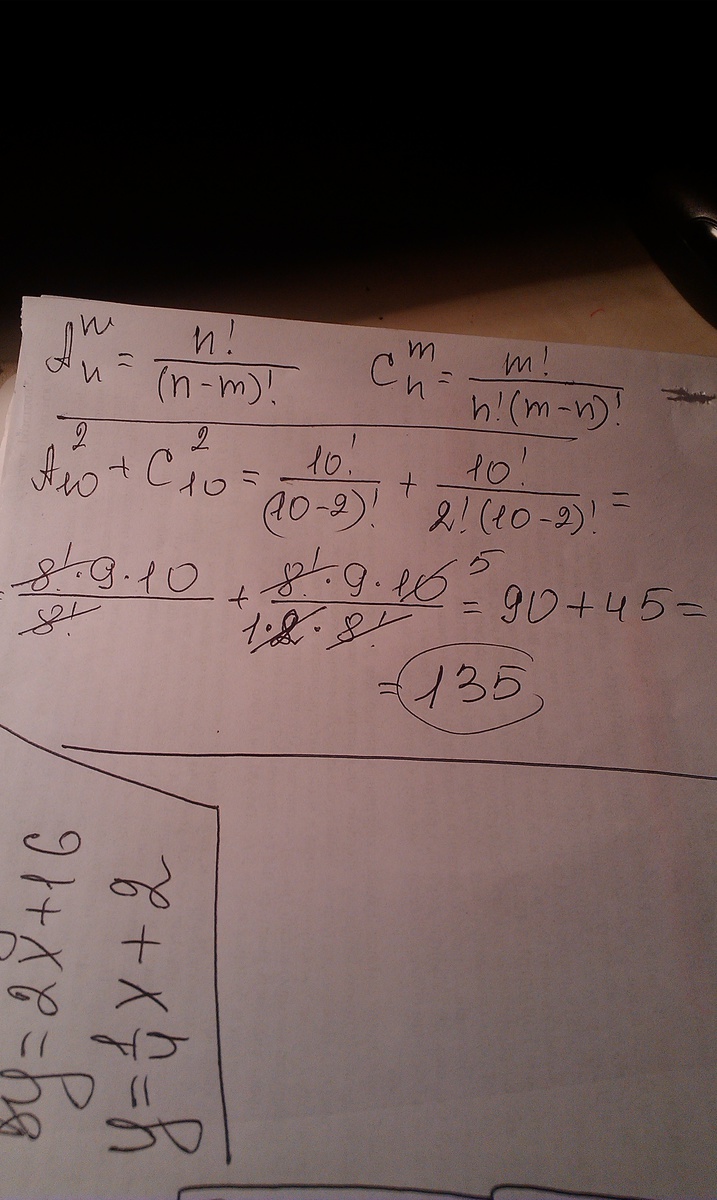 A_n^m = n!/(n-m)!   C_n^m = m!/n!(m-n)!
A_10^2 + C_10^2 = 10!/(10-2)! + 10!/2!(10-2)! =
= 8!·9·10/8! + 8!·9·10 5/1·2·8! = 90+45=
= 135
8y=2x+16
y=1/4x+2